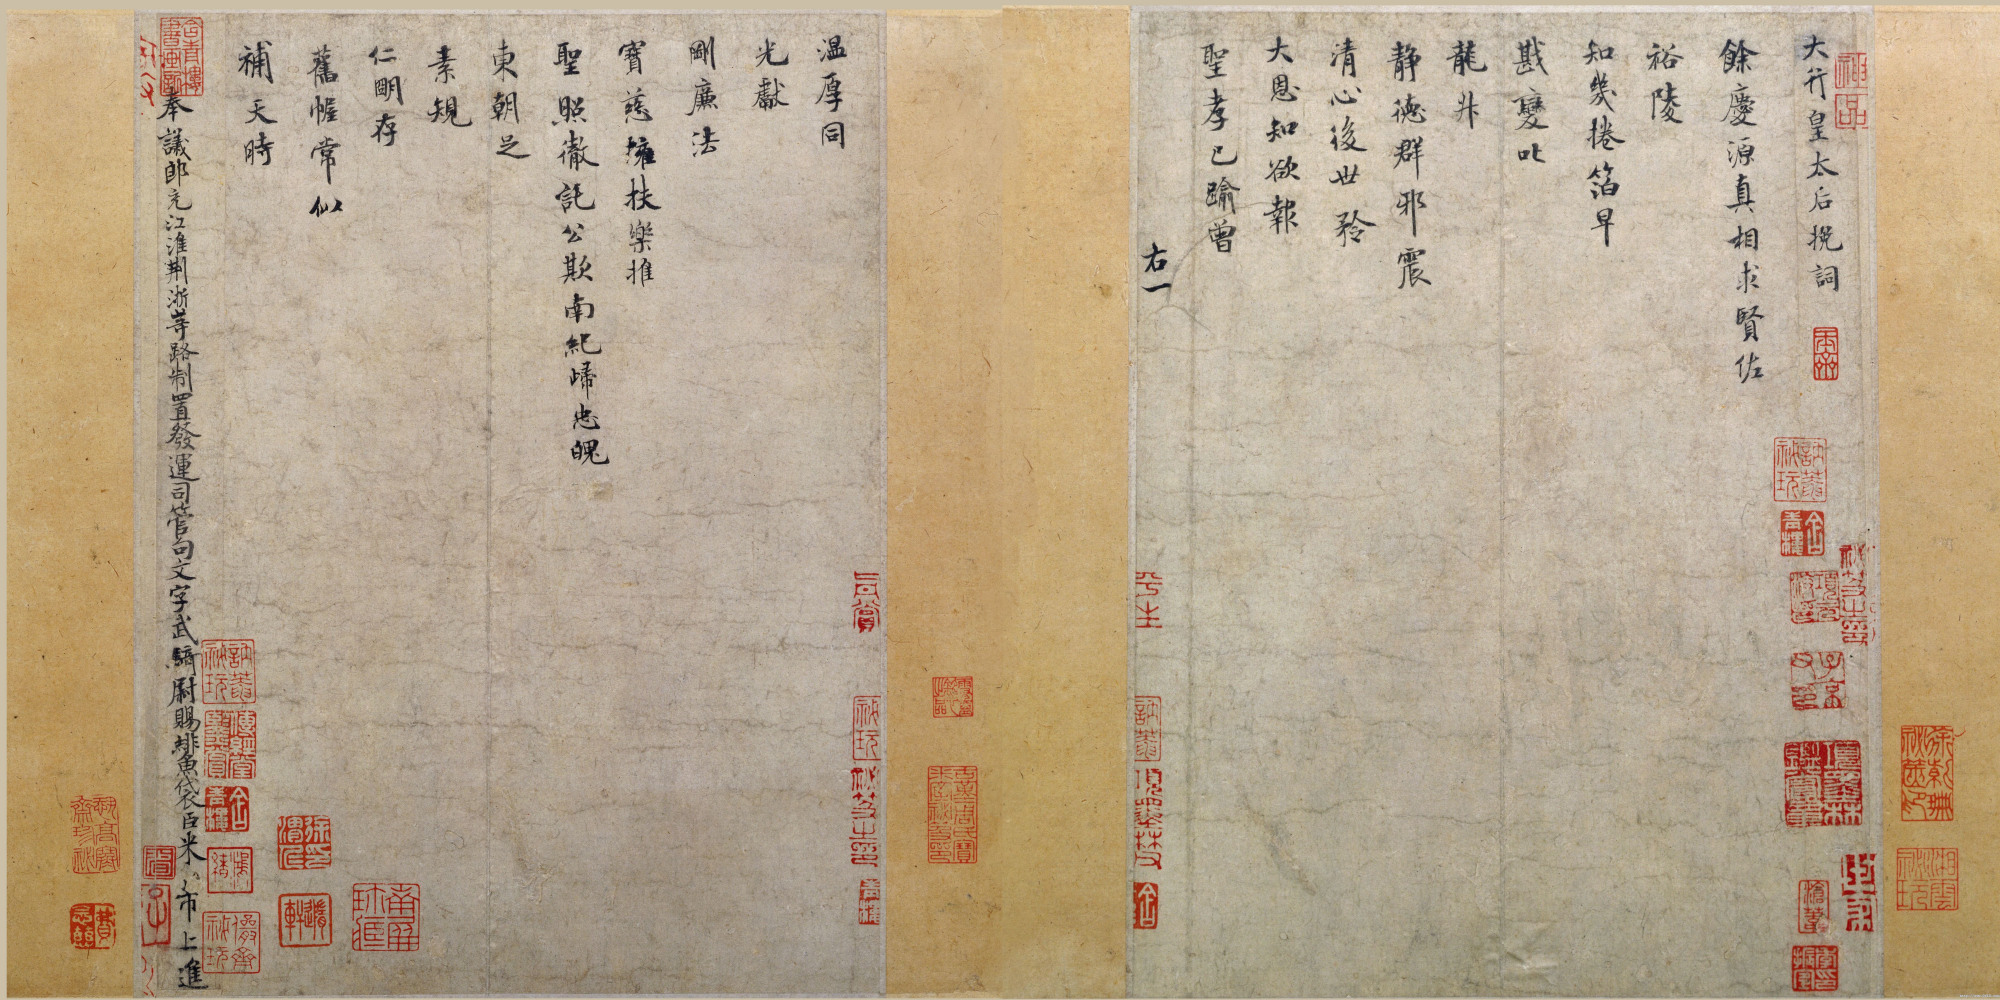 大行皇太后挽詞
餘慶源真相求賢佐
裕陵
知幾捲箔早
戡變叱
龍升
静德群邪震
清心後世矜
大恩知欲報
聖孝已踰曾
右一
温厚同
光獻
剛廉法
寶慈擁扶樂推
聖照徹託公欺南紀歸忠魄
東朝足
素規
仁明存
舊幄常似
補天時
奉議郎充江淮荆浙等路制置發運司管勾文字武騎尉賜緋魚袋臣米芾上進